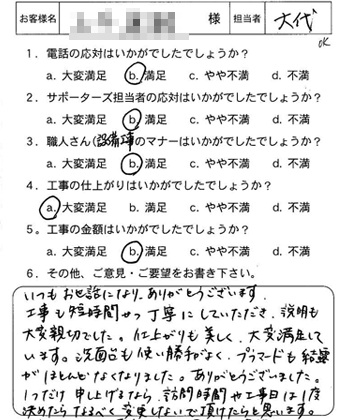 お客様名 様 担当者 大代
OK
1．電話の応対はいかがでしたでしょうか？
a. 大変満足 b. 満足 c. やや不満 d. 不満
2．サポーターズ担当者の応対はいかがでしたでしょうか？
a. 大変満足 b. 満足 c. やや不満 d. 不満
3．職人さん(設備工事のマナーはいかがでしたでしょうか？
a. 大変満足 b. 満足 c. やや不満 d. 不満
4．工事の仕上がりはいかがでしたでしょうか？
a. 大変満足 b. 満足 c. やや不満 d. 不満
5。工事の金額はいかがでしたでしょうか？
a. 大変満足 b. 満足 c. やや不満 d. 不満
6．その他、ご意見・ご要望をお書き下さい。
いつもお世話になり、ありがとうございます。
工事も短時間かつ丁寧にしていただき、説明も
大変親切でした。仕上がりも美しく、大変満足して
います。洗面台も使い勝手がよく、プラマードも結露
がほとんどなくなりました。ありがとうございました。
1つだけ申し上げるなら、訪問時間や工事日は1度
決めたらなるべく変更しないで頂けたらと思います。